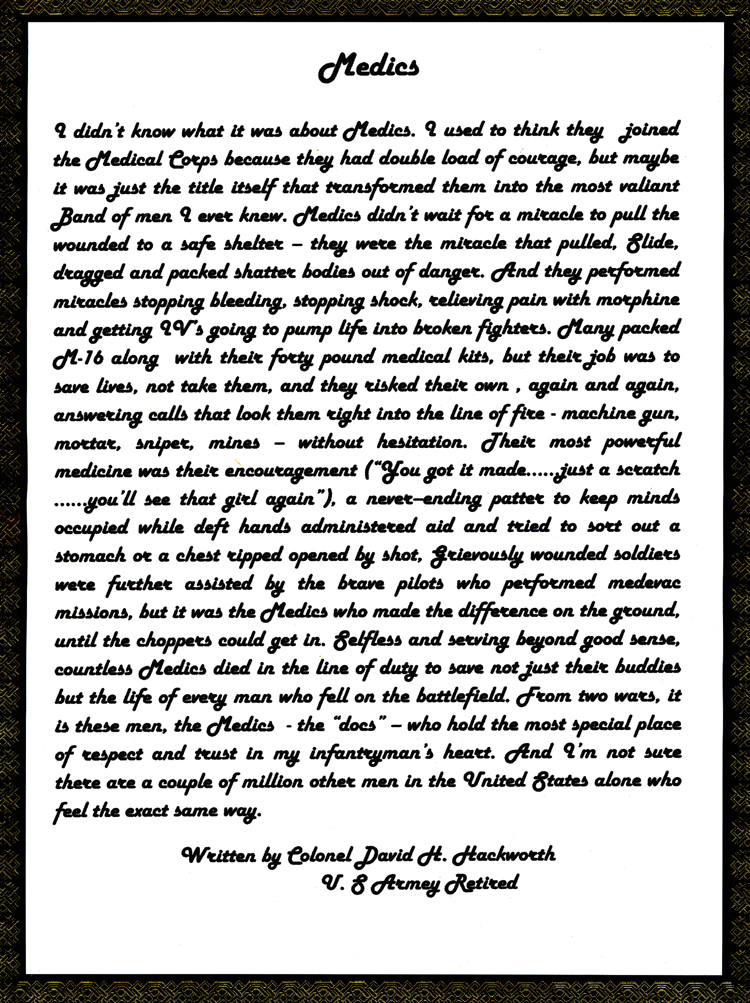 Medics
I didn't know what it was about Medics. I used to think they joined
the Medical Corps because they had double load of courage, but maybe
it was just the title itself that transformed them into the most valiant
Band of men I ever knew. Medics didn't wait for a miracle to pull the
wounded to a safe shelter – they were the miracle that pulled, Slide,
dragged and packed shatter bodies out of danger. And they performed
miracles stopping bleeding, stopping shock, relieving pain with morphine
and getting IV's going to pump life into broken fighters. Many packed
M-16 along with their forty pound medical kits, but their job was to
save lives, not take them, and they risked their own , again and again,
answering calls that look them right into the line of fire - machine gun,
mortar, sniper, mines – without hesitation. Their most powerful
medicine was their encouragement ("You got it made......just a scratch
......you'll see that girl again"), a never–ending patter to keep minds
occupied while deft hands administered aid and tried to sort out a
stomach or a chest ripped opened by shot, Grievously wounded soldiers
were further assisted by the brave pilots who performed medevac
missions, but it was the Medics who made the difference on the ground,
until the choppers could get in. Selfless and serving beyond good sense,
countless Medics died in the line of duty to save not just their buddies
but the life of every man who fell on the battlefield. From two wars, it
is these men, the Medics - the "docs" – who hold the most special place
of respect and trust in my infantryman's heart. And I'm not sure
there are a couple of million other men in the United States alone who
feel the exact same way.
Written by Colonel David H. Hackworth
U. S Armey Retired